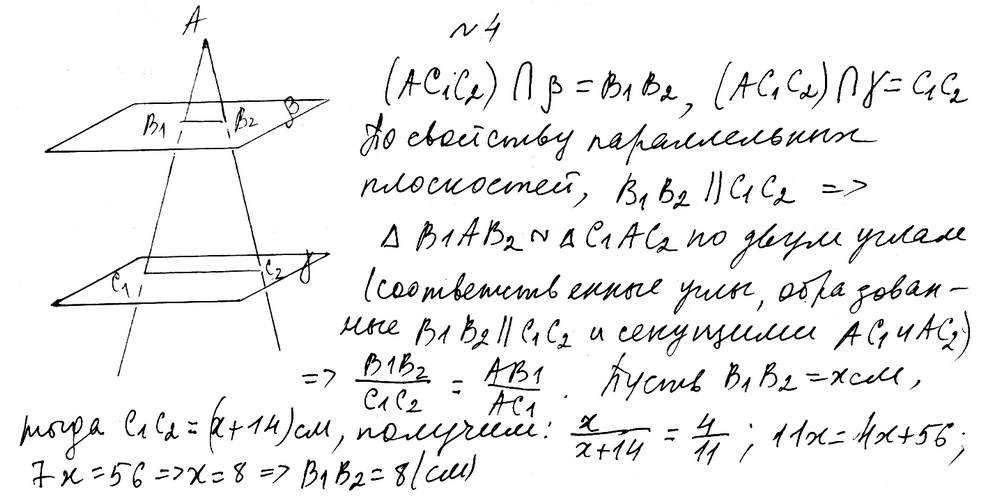 ~ 4
A
(AC₁C₂) ∩ β = B₁B₂, (AC₁C₂) ∩ γ = C₁C₂
B₁ B₂ β
По свойству параллельных
плоскостей, B₁B₂ || C₁C₂ =>
Δ B₁AB₂ ~ Δ C₁AC₂ по двум углам
C₁ C₂ γ
(соответственные углы, образован-
ные B₁B₂ || C₁C₂ и секущими AC₁ и AC₂)
=> B₁B₂/C₁C₂ = AB₁/AC₁. Пусть B₁B₂ = x см,
тогда C₁C₂ = (x+14) см, получим: x/(x+14) = 4/11; 11x = 4x+56;
7x = 56 => x = 8 => B₁B₂ = 8 (см)